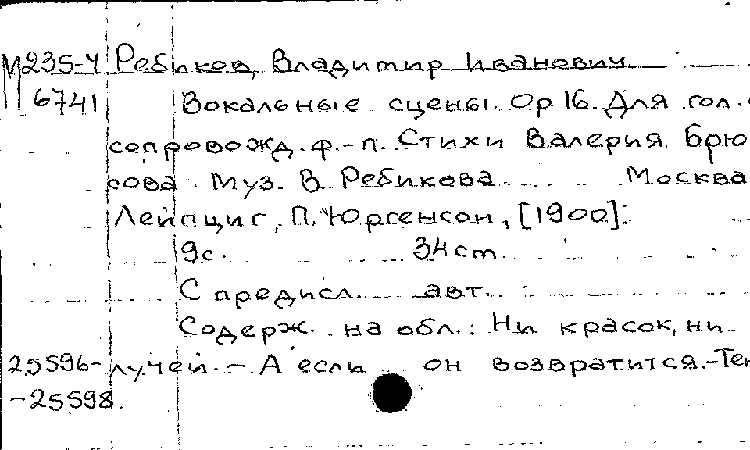 М 235-4 Ребиков, Владимир Иванович
6741 Вокальные сцены. Ор 16. Для гол. с
сопровожд. ф.-п. Стихи Валерия Брю
сова. Муз. В. Ребикова Москва
Лейпциг, П. Юргенсон, [1900].
9с. 34 cm.
С предисл. авт.
Содерж. на обл.: Ни красок, ни
25596- лучей. - А если он возвратится. - Тен
-25598.